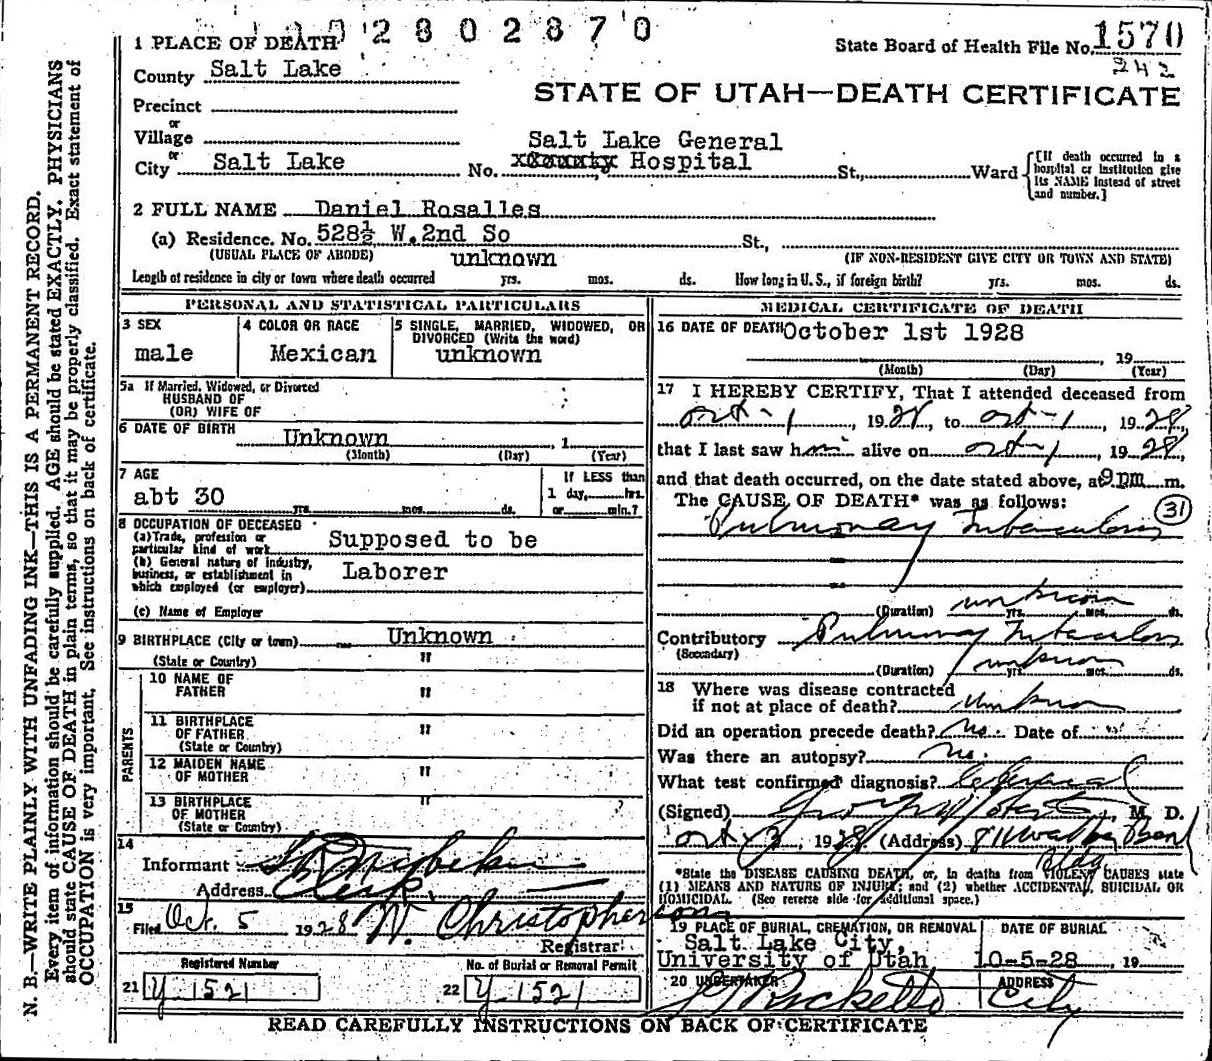 2802870
1 PLACE OF DEATH
State Board of Health File No. 1570
242
County Salt Lake
STATE OF UTAH—DEATH CERTIFICATE
Precinct
or
Village
Salt Lake General
or
City Salt Lake No. xCountyx Hospital St., Ward
{If death occurred in a
hospital or institution give
its NAME instead of street
and number.}
2 FULL NAME Daniel Rosalles
(a) Residence. No. 528½ W.2nd So St.,
(USUAL PLACE OF ABODE) unknown (IF NON-RESIDENT GIVE CITY OR TOWN AND STATE)
Length of residence in city or town where death occurred yrs. mos. ds. How long in U. S., if foreign birth? yrs. mos. ds.
PERSONAL AND STATISTICAL PARTICULARS
3 SEX
male
4 COLOR OR RACE
Mexican
5 SINGLE, MARRIED, WIDOWED, OR
DIVORCED (Write the word)
unknown
5a If Married, Widowed, or Divorced
HUSBAND OF
(OR) WIFE OF
6 DATE OF BIRTH Unknown , 1
(Month) (Day) (Year)
7 AGE
abt 30
yrs. mos. ds.
If LESS than
1 day, hrs.
or min.?
8 OCCUPATION OF DECEASED
(a) Trade, profession or
particular kind of work Supposed to be
(b) General nature of industry,
business, or establishment in
which employed (or employer) Laborer
(c) Name of Employer
9 BIRTHPLACE (City or town) Unknown
(State or Country) "
PARENTS
10 NAME OF
FATHER "
11 BIRTHPLACE
OF FATHER "
(State or Country)
12 MAIDEN NAME
OF MOTHER "
13 BIRTHPLACE "
OF MOTHER
(State or Country)
14
Informant
Address Clerk
15
Filed Oct. 5 1928 W. Christopherson
Registrar
Registered Number
21 Y 1521
No. of Burial or Removal Permit
22 Y 1521
MEDICAL CERTIFICATE OF DEATH
16 DATE OF DEATH October 1st 1928
, 19
(Month) (Day) (Year)
17 I HEREBY CERTIFY, That I attended deceased from
Oct-1, 1928, to Oct-1, 1928,
that I last saw him alive on Oct-1, 1928,
and that death occurred, on the date stated above, at 9 pm m.
The CAUSE OF DEATH* was as follows: 31
Pulmonary Tuberculosis
(Duration) unknown yrs. mos. ds.
Contributory Pulmonary Tuberculosis
(Secondary)
(Duration) unknown yrs. mos. ds.
18 Where was disease contracted
if not at place of death? Unknown
Did an operation precede death? No. Date of
Was there an autopsy? No.
What test confirmed diagnosis?
(Signed) M. D.
Oct-3, 1928 (Address) Bldg
*State the DISEASE CAUSING DEATH, or, in deaths from VIOLENT CAUSES state
(1) MEANS AND NATURE OF INJURY; and (2) whether ACCIDENTAL, SUICIDAL OR
HOMICIDAL. (See reverse side for additional space.)
19 PLACE OF BURIAL, CREMATION, OR REMOVAL
Salt Lake City,
University of Utah
DATE OF BURIAL
10-5-28, 19
20 UNDERTAKER
ADDRESS
City
READ CAREFULLY INSTRUCTIONS ON BACK OF CERTIFICATE
N. B.—WRITE PLAINLY WITH UNFADING INK—THIS IS A PERMANENT RECORD.
Every item of information should be carefully supplied. AGE should be stated EXACTLY. PHYSICIANS
should state CAUSE OF DEATH in plain terms, so that it may be properly classified. Exact statement of
OCCUPATION is very important. See instructions on back of certificate.